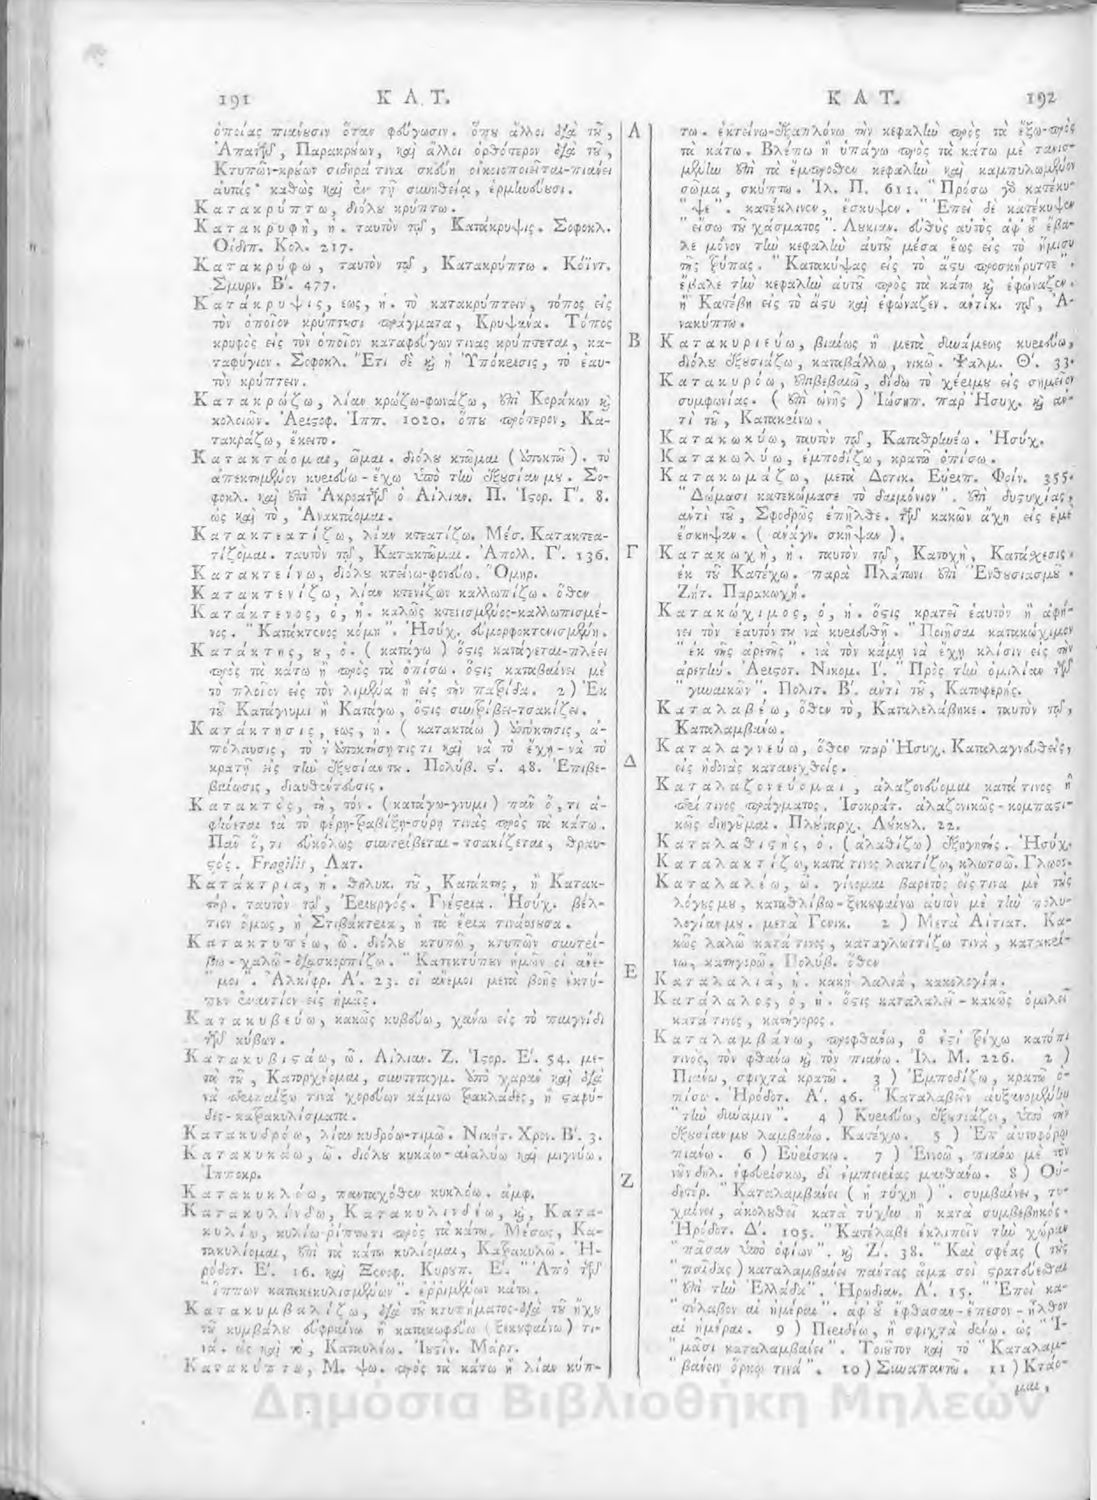 191 ΚΑΤ.
ὁποίας πιάνουσιν ὅταν φεύγωσιν. ὅπου ἄλλοι διὰ τοῦ,
Ἀπατῶν, Παρακρούων, καὶ ἄλλοι ὀρθότερον διὰ τοῦ,
Κτυπῶν-κρούων σιδηρᾶ τινα σκεύη οἰκειοποιεῖται-πιάνει
αὐτάς· καθὼς καὶ ἐν τῇ συνηθείᾳ, ἑρμηνεύουσι.
Κατακρύπτω, διόλου κρύπτω.
Κατακρυφὴ, ἡ. ταυτὸν τῷ, Κατάκρυψις. Σοφοκλ.
Οἰδιπ. Κολ. 217.
Κατακρύφω, ταυτὸν τῷ, Κατακρύπτω. Κόϊντ.
Σμυρν. Β΄. 477.
Κατάκρυψις, εως, ἡ. τὸ κατακρύπτειν, τόπος εἰς
τὸν ὁποῖον κρύπτουσι πράγματα, Κρυψάνα. Τόπος
κρυφὸς εἰς τὸν ὁποῖον καταφεύγων τινας κρύπτεται, κα-
ταφύγιον. Σοφοκλ. Ἔτι δὲ καὶ ἡ Ὑπόκρισις, τὸ ἑαυ-
τὸν κρύπτειν.
Κατακρώζω, λίαν κρώζω-φωνάζω, ἐπὶ Κοράκων καὶ
κολοιῶν. Ἀριστοφ. Ἱππ. 1020. ὅπου πρότερον, Κα-
τακράζω, ἔκειτο.
Κατακτάομαι, ῶμαι. διόλου κτῶμαι (ἀποκτῶ). τὸ
ἀπεκτημένον κυριεύω-ἔχω ὑπὸ τὴν ἐξουσίαν μου. Σο-
φοκλ. καὶ ἐπὶ Ἀκροατῶν ὁ Αἰλιαν. Π. Ἱστορ. Γ΄. 8.
ὡς καὶ τὸ, Ἀνακτάομαι.
Κατακτεατίζω, λίαν κτεατίζω. Μέσ. Κατακτεα-
τίζομαι. ταυτὸν τῷ, Κατακτῶμαι. Ἀπολλ. Γ΄. 136.
Κατακτείνω, διόλου κτείνω-φονεύω. Ὅμηρ.
Κατακτενίζω, λίαν κτενίζων καλλωπίζω. ὅθεν
Κατάκτενος, ὁ, ἡ. καλῶς κτενισμένος-καλλωπισμέ-
νος. "Κατάκτενος κόμη". Ἡσύχ. εὐμορφοκτενισμένη.
Κατάκτης, ου, ὁ. (κατάγω) ὅστις κατάγεται-πλέει
πρὸς τὰ κάτω ἢ πρὸς τὰ ὀπίσω. ὅστις καταβαίνει μὲ
τὸ πλοῖον εἰς τὸν λιμένα ἢ εἰς τὴν πατρίδα. 2) Ἐκ
τοῦ Κατάγνυμι ἢ Κατάγω, ὅστις συντρίβει-τσακίζει.
Κατάκτησις, εως, ἡ. (κατακτάω) ἀπόκτησις, ἀ-
πόλαυσις, τὸ ν᾽ ἀποκτήσῃ τίς τι καὶ νὰ τὸ ἔχῃ-νὰ τὸ
κρατῇ εἰς τὴν ἐξουσίαν του. Πολύβ. ϛ΄. 48. Ἐπιβε-
βαίωσις, διαυθέντευσις.
Κατακτὸς, τὴ, τόν. (κατάγω-γνυμι) πᾶν ὅ,τι ἀ-
φίνεται νὰ τὸ φέρῃ-τραβίξῃ-σύρῃ τινὰς πρὸς τὰ κάτω.
Πᾶν ὅ,τι εὐκόλως συντρίβεται-τσακίζεται, θραυ-
στός. Fragilis, Λατ.
Κατάκτρια, ἡ. θηλυκ. τοῦ, Κατάκτης, ἢ Κατακ-
τήρ. ταυτὸν τῷ, Ἐριουργός. Γνέστρια. Ἡσύχ. βέλ-
τιον ὅμως, ἡ Στιβάκτρια, ἡ τὰ ἔρια τινάσσουσα.
Κατακτυπέω, ῶ. διόλου κτυπῶ, κτυπῶν συντρί-
βω-χαλῶ-διασκορπίζω. "Κατεκτύπουν ἡμῶν οἱ ἄνε-
"μοι". Ἀλκίφρ. Α΄. 23. οἱ ἄνεμοι μετὰ βοῆς ἐκτύ-
πουν ἐναντίον εἰς ἡμᾶς.
Κατακυβεύω, κακῶς κυβεύω, χάνω εἰς τὸ παιγνίδι
τῶν κύβων.
Κατακυβιστάω, ῶ. Αἰλιαν. Ζ. Ἱστορ. Ε΄. 54. με-
τὰ τοῦ, Κατορχέομαι, συντεταγμ. ὑπὸ χαρᾶς καὶ διὰ
νὰ περιπαίξω τινὰ χορεύων κάμνω
Κατακυδρόω, λίαν κυδρόω-τιμῶ. Νικήτ. Χρον. Β΄. 3.
Κατακυκάω, ῶ. διόλου κυκάω-ἀναλύω καὶ μιγνύω.
Ἱπποκρ.
Κατακυκλόω, πανταχόθεν κυκλόω. ἀμφ.
Κατακυλίνδω, Κατακυλινδέω, καὶ, Κατα-
κυλίω, κυλίω-ρίπτω τι πρὸς τὰ κάτω. Μέσως, Κα-
τακυλίομαι, ἐπὶ τὰ κάτω κυλίομαι, Κατρακυλῶ. Ἡ-
ρόδοτ. Ε΄. 16. καὶ Ξενοφ. Κυρουπ. Ε΄. "Ἀπὸ τῶν
"ἵππων κατακεκυλισμένων". ἐρριμμένων κάτω.
Κατακυμβαλίζω, διὰ τοῦ κτυπήματος-διὰ τοῦ ἤχου
τοῦ κυμβάλου εὐφραίνω ἢ κατακωφεύω (ξεκουφαίνω) τι-
νά. ὡς καὶ τὸ, Καταυλέω. Ἰουστῖν. Μάρτ.
Κατακύπτω, Μ. ψω. πρὸς τὰ κάτω ἢ λίαν κύπ-
Α
Β
Γ
Δ
Ε
Ζ
ΚΑΤ. 192
τω. ἐκτείνω-ἐξαπλόνω τὴν κεφαλὴν πρὸς τὰ ἔξω-πρὸς
τὰ κάτω. Βλέπω ἢ ὑπάγω πρὸς τὰ κάτω μὲ τανισ-
μένην ἐπὶ τὰ ἔμπροσθεν κεφαλὴν καὶ καμπυλωμένον
σῶμα, σκύπτω. Ἰλ. Π. 611. "Πρόσω γὰρ κατέκυ-
"ψε". κατέκλινεν, ἔσκυψεν. "Ἐπεὶ δὲ κατέκυψεν
"εἴσω τοῦ χάσματος". Λουκιαν. εὐθὺς αὐτὸς ἀφ᾽ οὗ ἔβα-
λε μόνον τὴν κεφαλὴν αὑτοῦ μέσα ἕως εἰς τὸ ἥμισυ
τῆς τρύπας. "Κατακύψας εἰς τὸ ἄστυ προσκήρυττε".
ἔβαλε τὴν κεφαλὴν αὑτοῦ πρὸς τὰ κάτω καὶ ἐφώναζεν.
ἢ Κατέβη εἰς τὸ ἄστυ καὶ ἐφώναζεν. ἀντίκ. τῷ, Ἀ-
νακύπτω.
Κατακυριεύω, βιαίως ἢ μετὰ δυνάμεως κυριεύω,
διόλου ἐξουσιάζω, καταβάλλω, νικῶ. Ψαλμ. Θ΄. 33.
Κατακυρόω, ἐπιβεβαιῶ, δίδω τὸ χέριμου εἰς σημεῖον
συμφωνίας. (ἐπὶ ὠνῆς) Ἰώσηπ. παρ᾽ Ἡσυχ. καὶ ἀν-
τὶ τοῦ, Κατακρίνω.
Κατακωκύω, ταυτὸν τῷ, Καταθρηνέω. Ἡσύχ.
Κατακωλύω, ἐμποδίζω, κρατῶ ὀπίσω.
Κατακωμάζω, μετὰ Δοτικ. Εὐριπ. Φοίν. 355.
"Δώμασι κατεκώμασε τὸ δαιμόνιον". ἐπὶ δυστυχίας,
ἀντὶ τοῦ, Σφοδρῶς ἐπῆλθε. τῶν κακῶν ἄχη εἰς ἐμὲ
ἔσκηψαν. (ἀνάγν. σκῆψαν).
Κατακωχὴ, ἡ. ταυτὸν τῷ, Κατοχὴ, Κατάσχεσις.
ἐκ τοῦ Κατέχω. παρὰ Πλάτωνι ἐπὶ Ἐνθουσιασμοῦ.
Ζήτ. Παρακωχή.
Κατακώχιμος, ὁ, ἡ. ὅστις κρατεῖ ἑαυτὸν ἢ ἀφή-
νει τὸν ἑαυτόν του νὰ κυριευθῇ. "Ποιῆσαι κατακώχιμον
"ἐκ τῆς ἀρετῆς". νὰ τὸν κάμῃ νὰ ἔχῃ κλίσιν εἰς τὴν
ἀρετήν. Ἀριστοτ. Νικομ. Ι΄. "Πρὸς τὴν ὁμιλίαν τῶν
"γυναικῶν". Πολιτ. Β΄. ἀντὶ τοῦ, Κατωφερής.
Καταλαβέω, ὅθεν τὸ, Καταλελάβηκε. ταυτὸν τῷ,
Καταλαμβάνω.
Καταλαγνεύω, ὅθεν παρ᾽ Ἡσυχ. Καταλαγνευθεὶς,
εἰς ἡδονὰς κατανεχθείς.
Καταλαζονεύομαι, ἀλαζονεύομαι κατά τινος ἢ
περί τινος πράγματος. Ἰσοκράτ. ἀλαζονικῶς-κομπαστι-
κῶς διηγοῦμαι. Πλούταρχ. Λουκουλ. 22.
Καταλαθιστὴς, ὁ. (ἀλαθίζω) ἐξηγητής. Ἡσύχ.
Καταλακτίζω, κατά τινος λακτίζω, κλωτσῶ. Γλωσσ.
Καταλαλέω, ῶ. γίνομαι βαρετὸς εἴς τινα μὲ τοὺς
λόγους μου, καταθλίβω-ξεκουφαίνω αὐτὸν μὲ τὴν πολυ-
λογίαν μου. μετὰ Γενικ. 2) Μετὰ Αἰτιατ. Κα-
κῶς λαλῶ κατά τινος, καταγλωττίζω τινὰ, κατακρί-
νω, κατηγορῶ. Πολύβ. ὅθεν
Καταλαλιὰ, ἡ. κακὴ λαλιὰ, κακολογία.
Κατάλαλος, ὁ, ἡ. ὅστις καταλαλεῖ-κακῶς ὁμιλεῖ
κατά τινος, κατήγορος.
Καταλαμβάνω, προφθάνω, ὅ ἐστὶ τρέχω κατόπι
τινὸς, τὸν φθάνω καὶ τὸν πιάνω. Ἰλ. Μ. 226. 2)
Πιάνω, σφιχτὰ κρατῶ. 3) Ἐμποδίζω, κρατῶ ὀ-
πίσω. Ἡρόδοτ. Α΄. 46. "Καταλαβεῖν αὐξανομένην
"τὴν δύναμιν". 4) Κυριεύω, ἐξουσιάζω, ὑπὸ τὴν
ἐξουσίαν μου λαμβάνω. Κατέχω. 5) Ἐπ᾽ αὐτοφόρῳ
πιάνω. 6) Εὑρίσκω. 7) Ἐννοῶ, πιάνω μὲ τὸν
νοῦν δηλ. ἐφευρίσκω, δι᾽ ἐμπειρίας μανθάνω. 8) Οὐ-
δετέρ. "Καταλαμβάνει (ἡ τύχη)". συμβαίνει, τυ-
χαίνει, ἀκολουθεῖ κατὰ τύχην ἢ κατὰ συμβεβηκός.
Ἡρόδοτ. Δ΄. 105. "Κατέλαβε ἐκλιπεῖν τὴν χώραν
"πᾶσαν ὑπὸ ὀφίων". καὶ Ζ΄. 38. "Καί σφέας (τοὺς
"παῖδας) καταλαμβάνει πάντας ἅμα σοὶ στρατεύεσθαι
"ἐπὶ τὴν Ἑλλάδα". Ἡρωδιαν. Α΄. 15. "Ἐπεὶ κα-
"τέλαβον αἱ ἡμέραι". ἀφ᾽ οὗ ἔφθασαν-ἔπεσον-ἦλθον
αἱ ἡμέραι. 9) Περιδέω, ἢ σφιχτὰ δένω. ὡς "Ἱ-
"μᾶσι καταλαμβάνει". Τοιοῦτον καὶ τὸ "Καταλαμ-
"βάνειν ὅρκῳ τινά". 10) Συναπαντῶ. 11) Κτάο-
μαι,
Δημόσια Βιβλιοθήκη Μηλεών